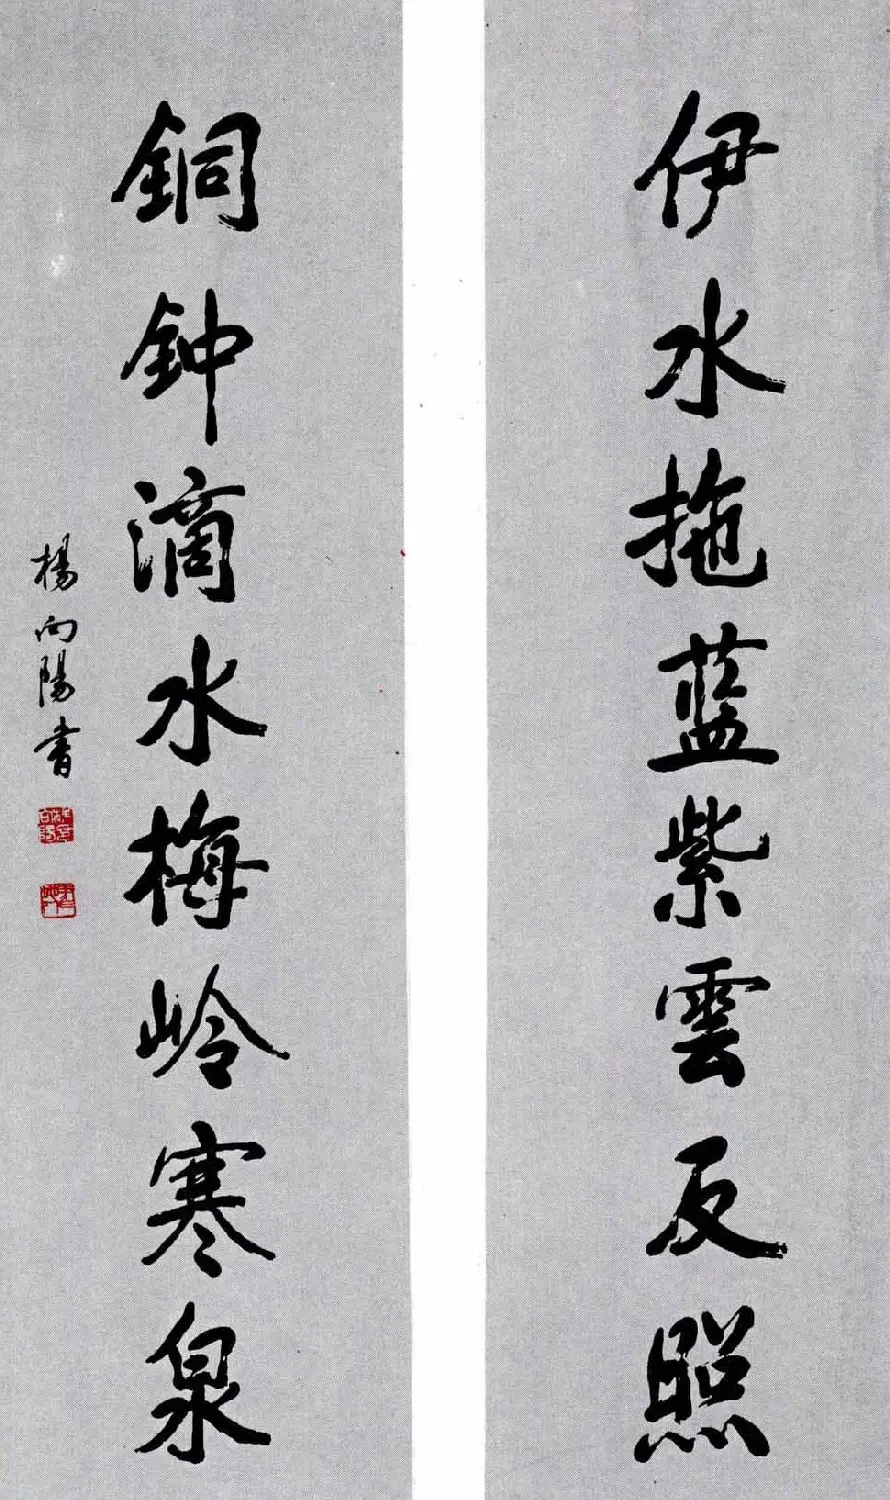 伊水拖蓝紫雲反照
銅鈡滴水梅岭寒泉
楊向陽书